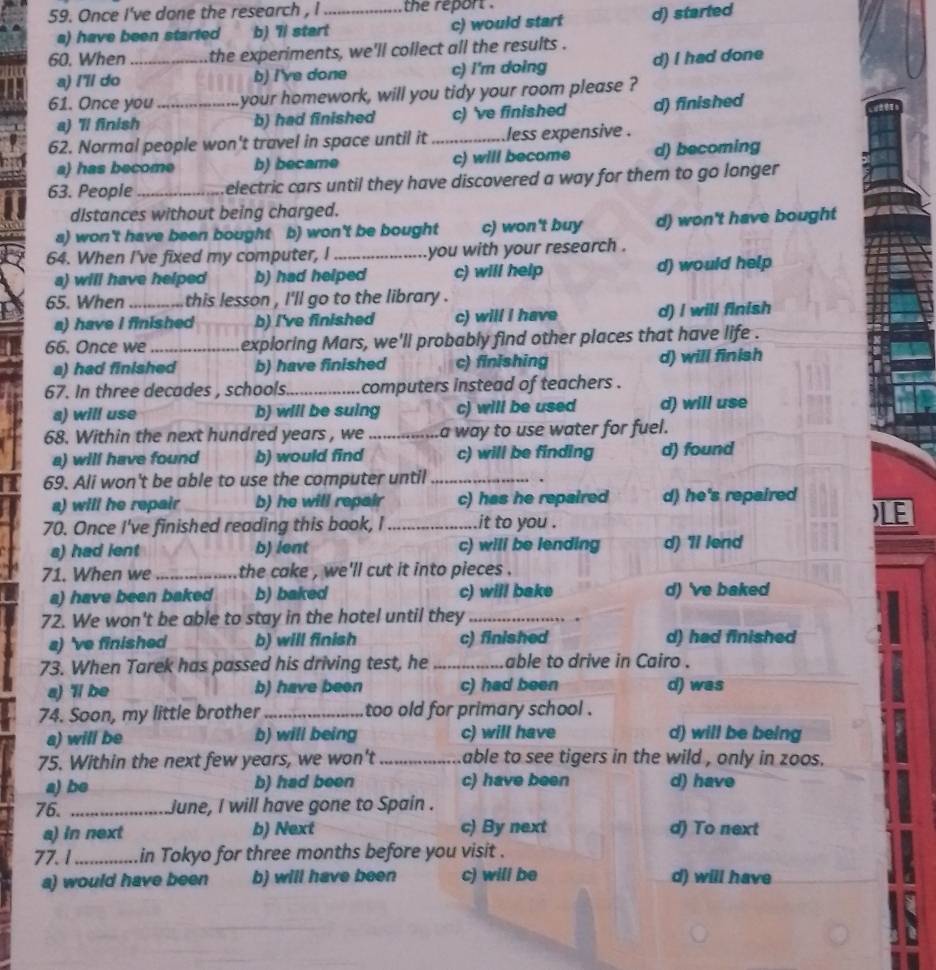 59. Once I've done the research , I ..................the report .
a) have been started b) 'll start c) would start d) started
60. When ..................the experiments, we'll collect all the results .
a) I'll do b) I've done c) I'm doing d) I had done
61. Once you ...................your homework, will you tidy your room please ?
a) 'll finish b) had finished c) 've finished d) finished
62. Normal people won't travel in space until it .................less expensive .
a) has become b) became c) will become d) becoming
63. People ....................electric cars until they have discovered a way for them to go longer
distances without being charged.
a) won't have been bought b) won't be bought c) won't buy d) won't have bought
64. When I've fixed my computer, I .....................you with your research .
a) will have helped b) had helped c) will help d) would help
65. When .............this lesson , I'll go to the library .
a) have I finished b) I've finished c) will I have d) I will finish
66. Once we .....................exploring Mars, we'll probably find other places that have life .
a) had finished b) have finished c) finishing d) will finish
67. In three decades , schools.................computers instead of teachers .
a) will use b) will be suing c) will be used d) will use
68. Within the next hundred years , we ................a way to use water for fuel.
a) will have found b) would find c) will be finding d) found
69. Ali won't be able to use the computer until ...................... .
a) will he repair b) he will repair c) has he repaired d) he's repaired
70. Once I've finished reading this book, I .....................it to you .
a) had lent b) lent c) will be lending d) 'll lend
71. When we ...................the cake , we'll cut it into pieces .
a) have been baked b) baked c) will bake d) 've baked
72. We won't be able to stay in the hotel until they ...................... .
a) 've finished b) will finish c) finished d) had finished
73. When Tarek has passed his driving test, he ................able to drive in Cairo .
a) 'll be b) have been c) had been d) was
74. Soon, my little brother .......................too old for primary school .
a) will be b) will being c) will have d) will be being
75. Within the next few years, we won't ...................able to see tigers in the wild , only in zoos.
a) be b) had been c) have been d) have
76. .......................June, I will have gone to Spain .
a) in next b) Next c) By next d) To next
77. I ..............in Tokyo for three months before you visit .
a) would have been b) will have been c) will be d) will have